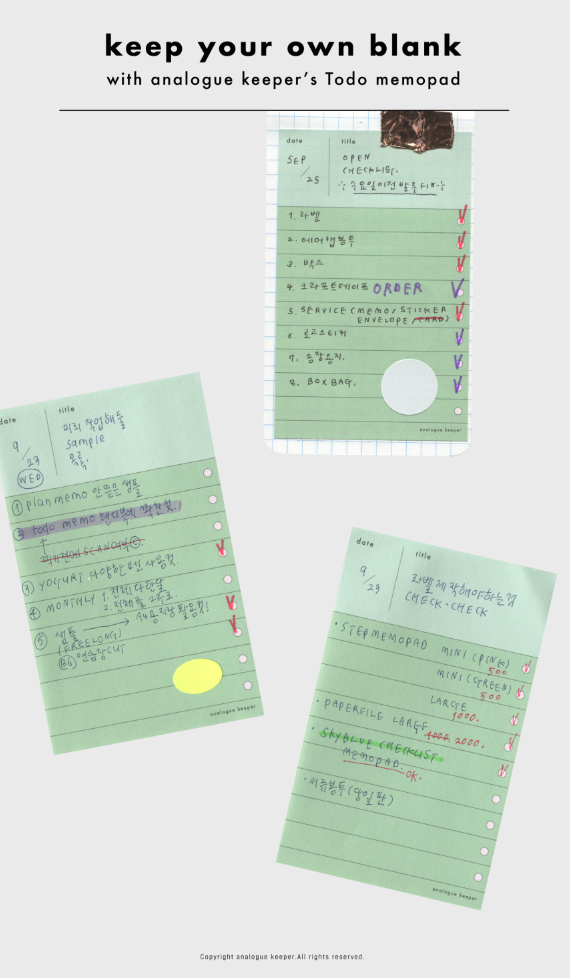 keep your own blank
with analogue keeper's Todo memopad
date
title
SEP
/
25
OPEN
CHECKLIST.
수요일이전발주
1. 라벨
2. 에어캡봉투
3. 박스
4. 크라프트테이프 ORDER
5. SERVICE (MEMO / STICKER
ENVELOPE / CARD)
6. 로고스티커
7. 송장용지.
8. BOX BAG.
analogue keeper
date
title
9
/
23
WED
sample
목록.
① plan memo 샘플
② todo memo
SCAN
③ YOGURT 다양한 펜 사용컷
④ MONTHLY 1. 전체 다 한달
2.
⑤ 샘플
(FREELONG)
B6
CUT
analogue keeper
date
title
9
/
23
라벨제작해야하는것
CHECK · CHECK
· STEP MEMOPAD MINI (PINK)
500
MINI (GREEN)
500
LARGE
1000.
· PAPERFILE LARGE
1000. 2000.
· SKYBLUE CHECKLIST
MEMOPAD
OK.
· 서류봉투 (당일판)
analogue keeper
Copyright analogue keeper.All rights reserved.